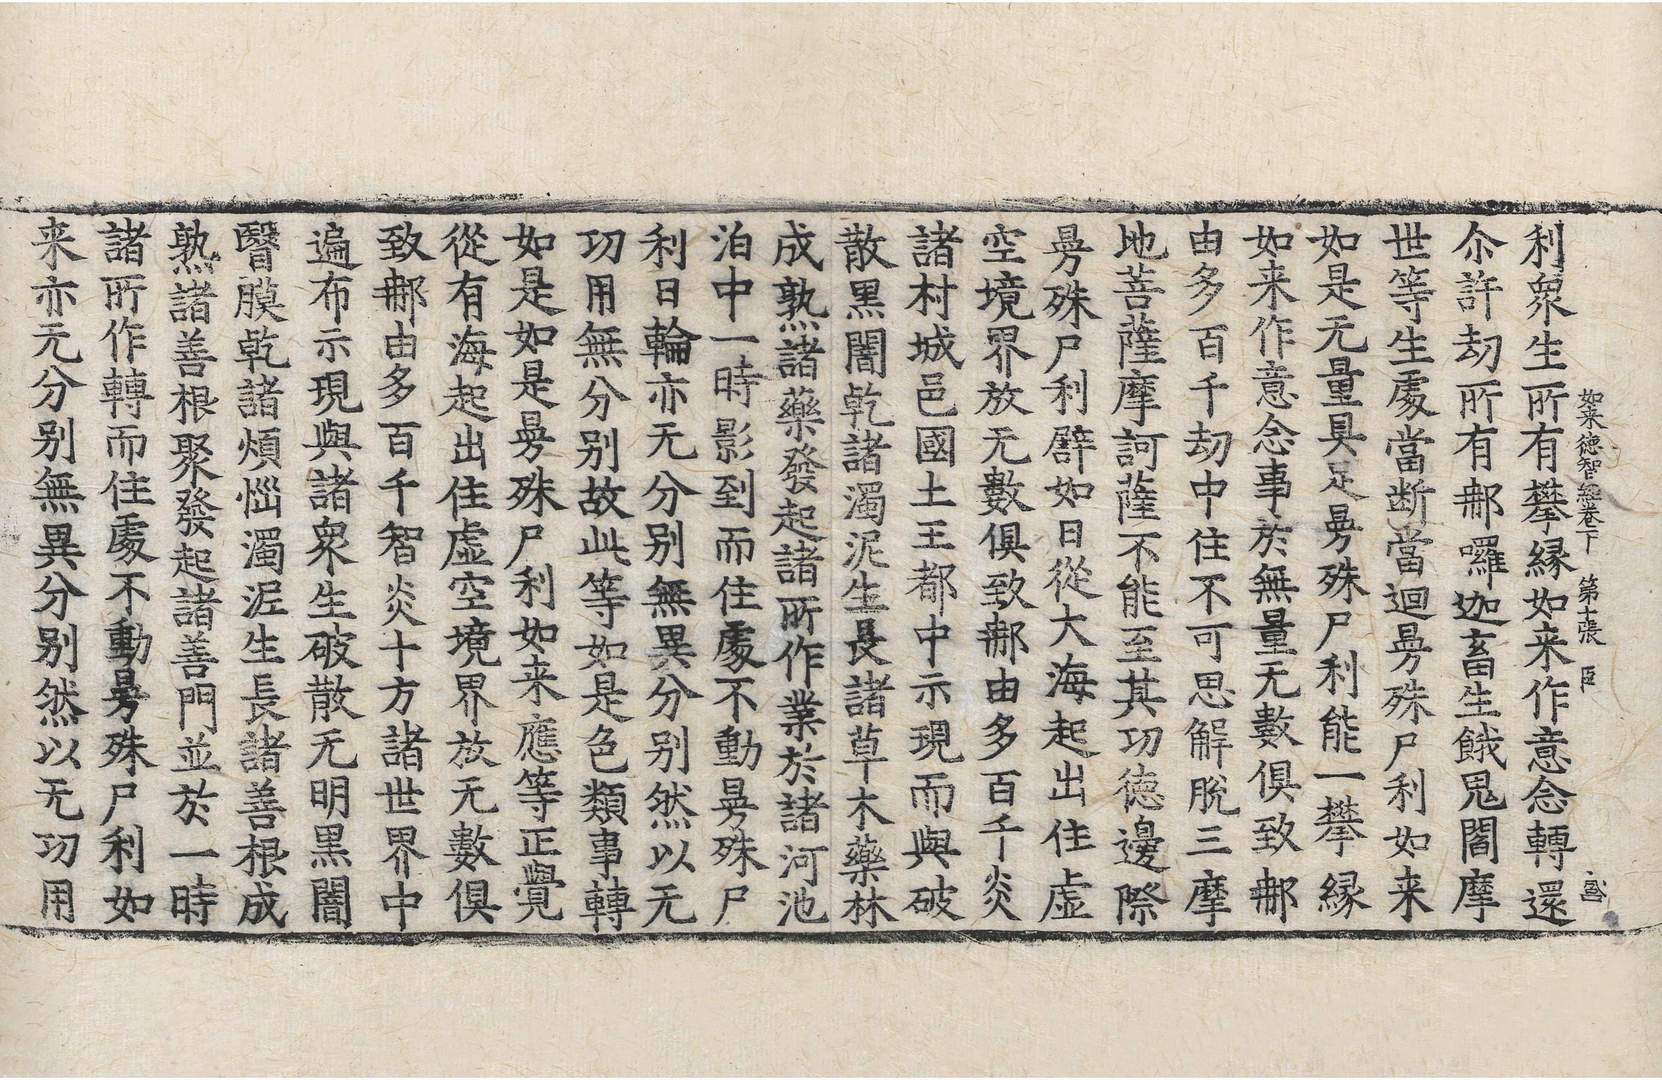 如来德智經卷下 第十張 臣
利衆生所有攀縁如来作意念轉還
尒許劫所有㖠囉迦畜生餓鬼閻摩
世等生處當断當迴曼殊尸利如来
如是无量具足曼殊尸利能一攀縁
如来作意念事於無量无數俱致㖠
由多百千劫中住不可思解脫三摩
地菩薩摩訶薩不能至其功德邊際
曼殊尸利譬如日從大海起出住虛
空境界放无數俱致㖠由多百千炎
諸村城邑國土王都中示現而與破
散黑闇乾諸濁泥生長諸草木藥林
成熟諸藥發起諸所作業於諸河池
泊中一時影到而住處不動曼殊尸
利日輪亦无分别無異分别然以无
功用無分别故此等如是色類事轉
如是如是曼殊尸利如来應等正覺
從有海起出住虛空境界放无數俱
致㖠由多百千智炎十方諸世界中
遍布示現與諸衆生破散无明黑闇
瞖膜乾諸煩惱濁泥生長諸善根成
熟諸善根聚發起諸善門並於一時
諸所作轉而住處不動曼殊尸利如
来亦无分别無異分别然以无功用